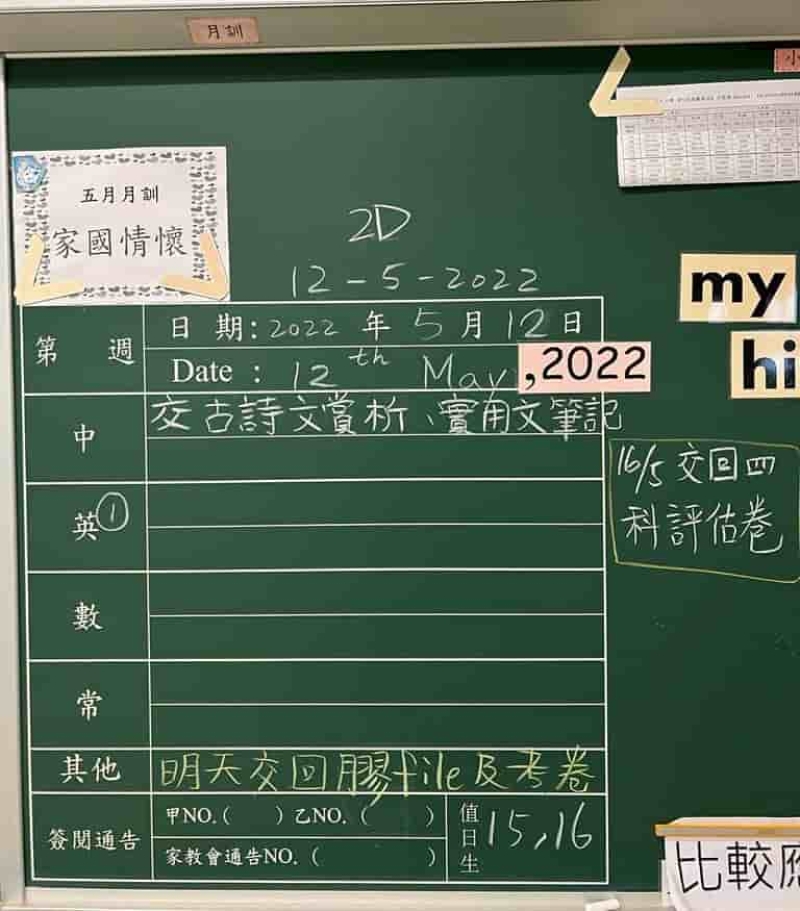 月訓
小
五月月訓
家國情懷
2D
12-5-2022
my
hi
第 週
日 期: 2022 年 5 月 12 日
Date : 12th May ,2022
中
交古詩文賞析、實用文筆記
16/5 交回四
科評估卷
英①
數
常
其他
明天交回膠file及考卷
簽閱通告
甲NO.( ) 乙NO.( )
家教會通告NO.( )
值日生
15,16
比較應